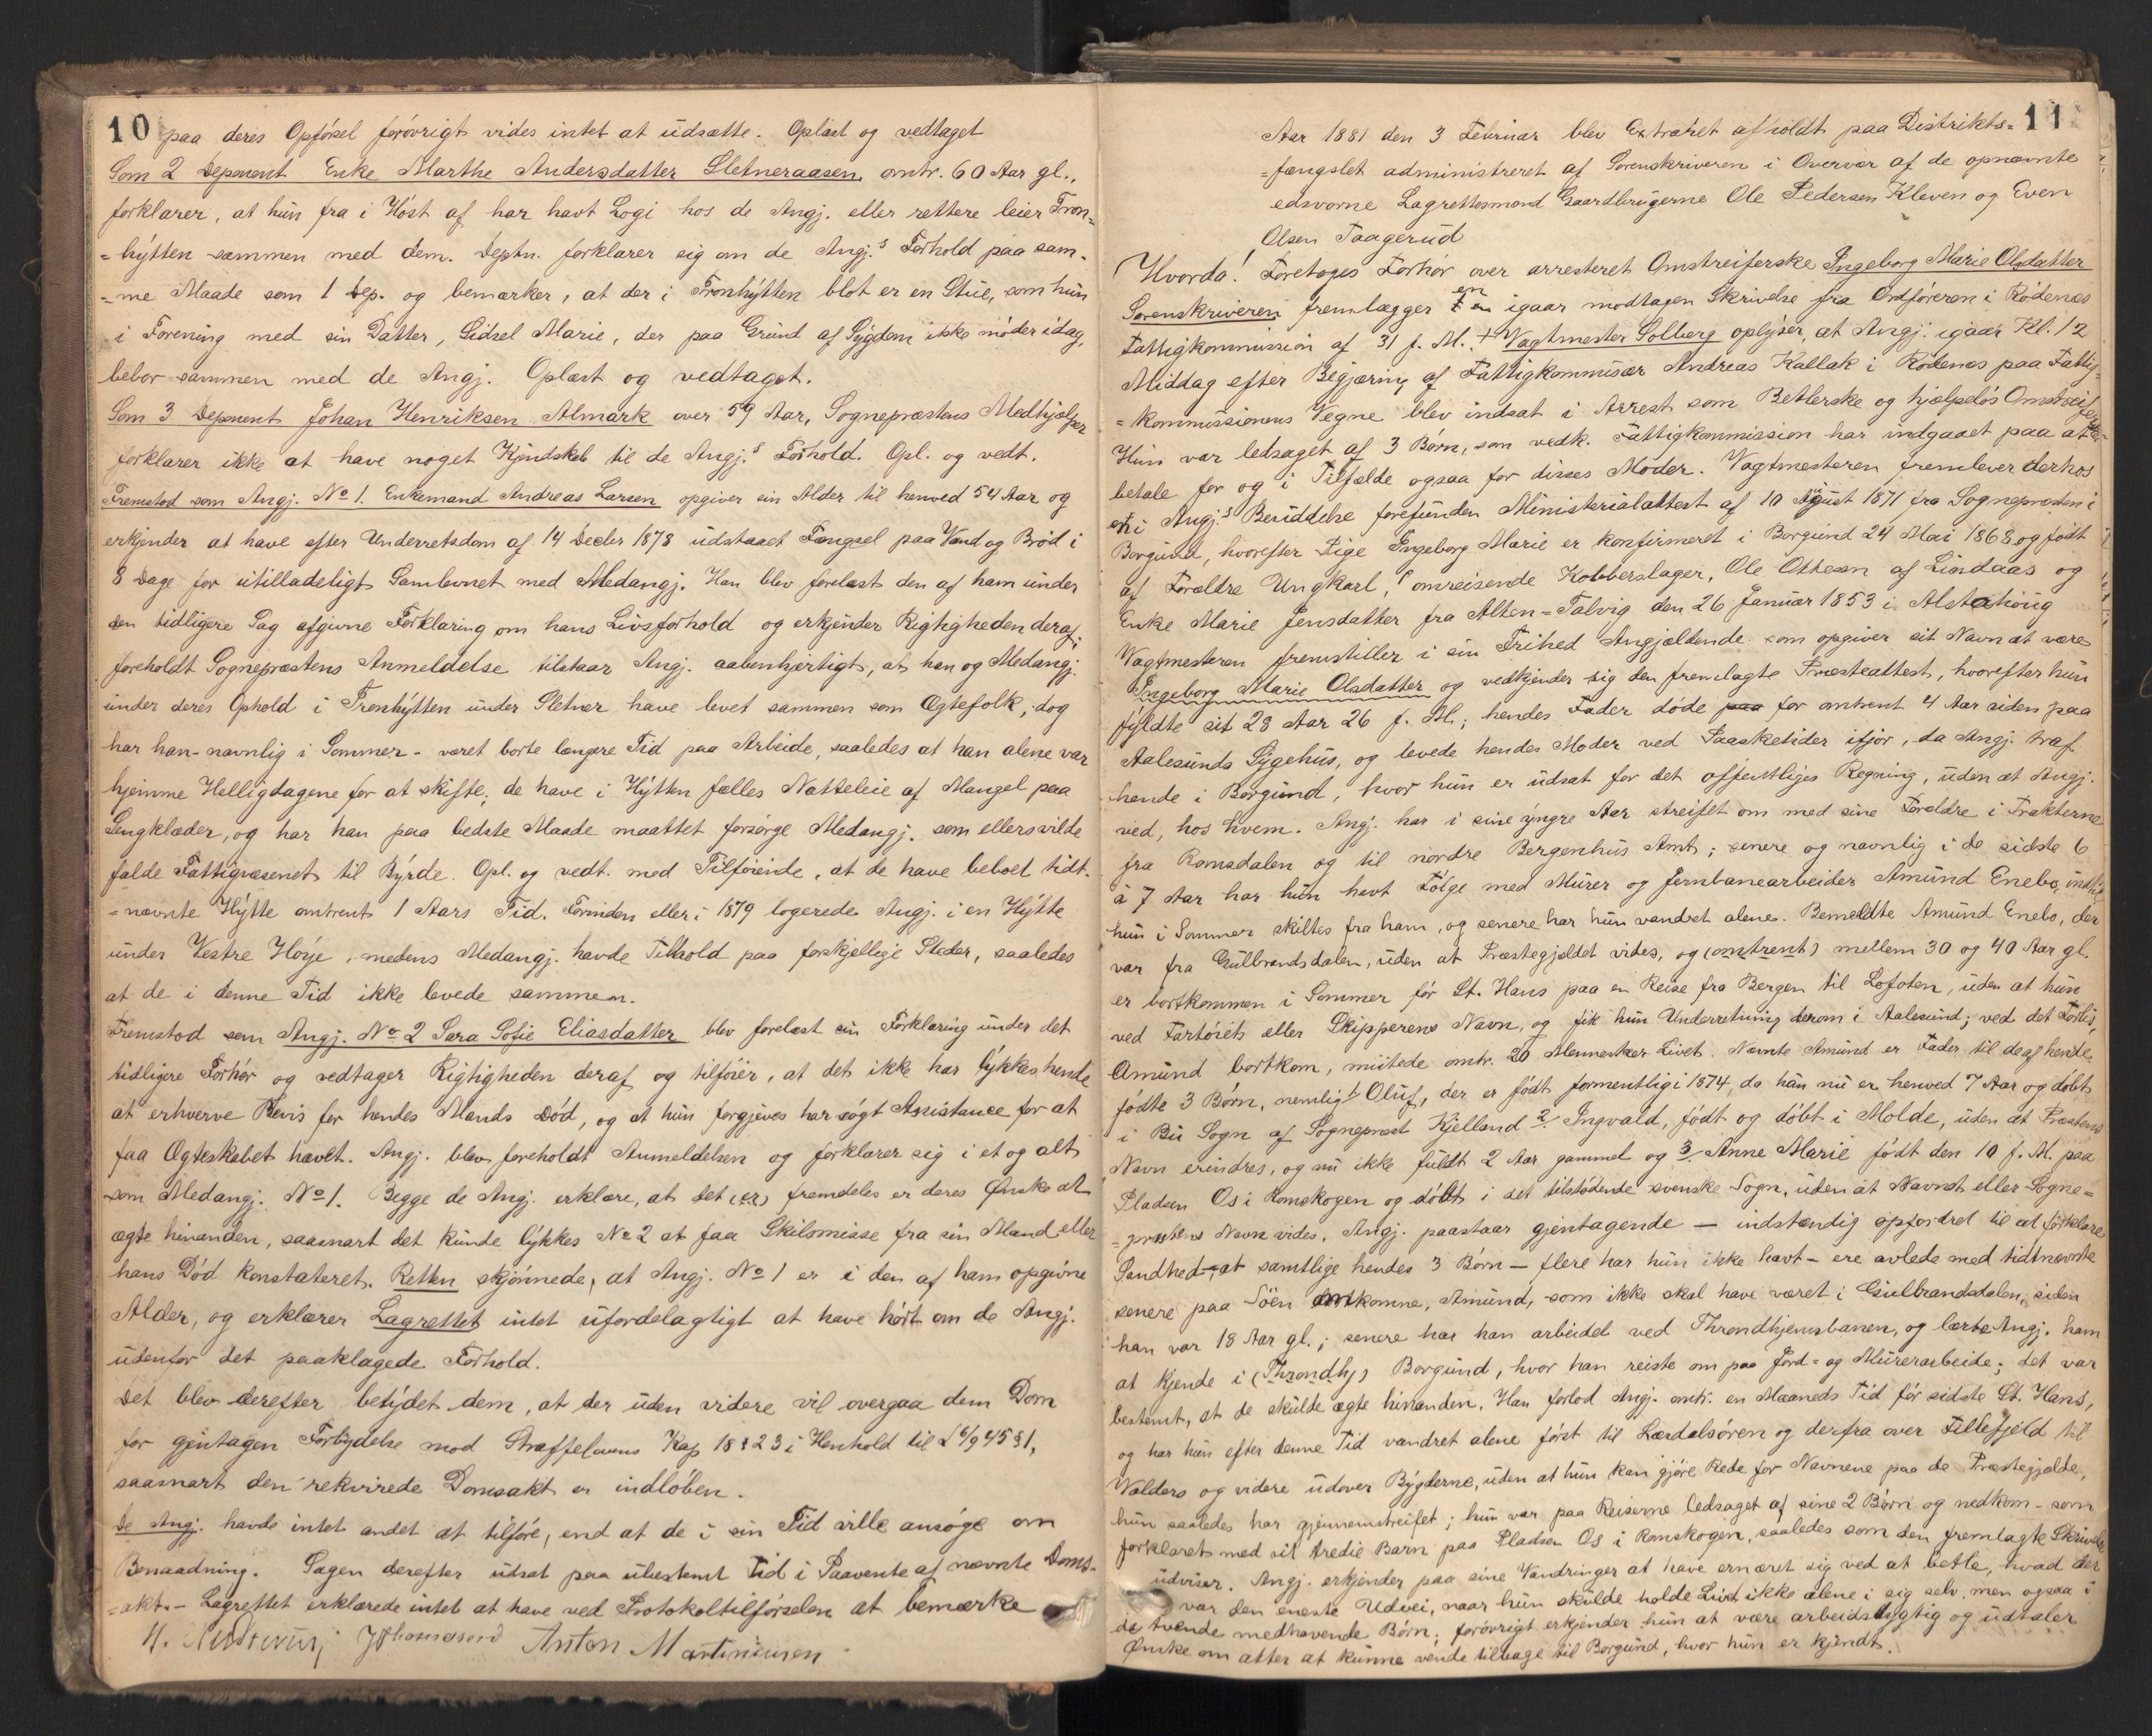 10 paa deres Opførsel forøvrigt vides intet at udsætte. Oplæst og vedtaget
Som 2 Deponent Enke Marthe Andersdatter Sletneraasen, omtr. 60 Aar gl.,
forklarer, at hun fra i Høst af har havt Logi hos de Angj. eller rettere leier Tron=
=hytten sammen med dem. Deptn. forklarer sig om de Angj.s Forhold paa sam-
=me Maade som 1 Dep. og bemærker, at der i Tronhytten blot er en Stue, som hun
i Forening med sin Datter, Sidsel Marie, der paa Grund af Sygdom ikke møder idag,
bebor sammen med de Angj. Oplæst og vedtaget.
Som 3 Deponent Johan Henriksen Almark over 59 Aar, Sognepræstens Medhjælper
forklarer ikke at have noget Kjendskab til de Angj.s Forhold. Opl. og vedt.
Fremstod som Angj. No 1. Enkemand Andreas Larsen opgiver sin Alder til henved 54 Aar og
erkjender at have efter Underretsdom af 14 Decbr 1878 udstaaet Fængsel paa Vand og Brød i
8 Dage for utilladeligt Samlevnet med Medangj. Han blev forelæst den af ham under
den tidligere Sag afgivne Forklaring om hans Livsforhold og erkjender Rigtigheden deraf;
foreholdt Sognepræstens Anmeldelse tilstaar Angj. aabenhjertigt, at han og Medangj.
under deres Ophold i Tronhytten under Sletner have levet sammen som Ægtefolk, dog
har han - navnlig i Sommer - været borte længere Tid paa Arbeide, saaledes at han alene var
hjemme Helligdagene for at skifte; de have i Hytten fælles Natteleie af Mangel paa
Sengklæder, og har han paa bedste Maade maattet forsørge Medangj. som ellers vilde
falde Fattigvæsenet til Byrde. Opl. og vedt. med Tilføiende, at de have beboet tidt-
=nævnte Hytte omtrent 1 Aars Tid. Forinden eller i 1879 logerede Angj. i en Hytte
under Vestre Høye, medens Medangj. havde Tilhold paa forskjellige Steder, saaledes
at de i denne Tid ikke levede sammen.
Fremstod som Angj. No 2 Sara Sofie Eliasdatter blev forelæst sin Forklaring under det
tidligere Forhør og vedtager Rigtigheden deraf og tilføier, at det ikke har lykkes hende
at erhverve Bevis for hendes Mands Død, og at hun forgjæves har søgt Assistance for at
faa Ægteskabet hævet. Angj. blev foreholdt Anmeldelsen og forklarer sig i et og alt
som Medangj. No 1. Begge de Angj. erklære, at det (er) fremdeles er deres Ønske at
ægte hinanden, saasnart det kunde lykkes No 2 at faa Skilsmisse fra sin Mand eller
hans Død konstateret. Retten skjønnede, at Angj. No 1 er i den af ham opgivne
Alder, og erklærer Lagrettet intet ufordelagtigt at have hørt om de Angj.
udenfor det paaklagede Forhold.
Det blev derefter betydet dem, at der uden videre vil overgaa dem Dom
for gjentagen Forbrydelse mod Straffelovens Kap 18 § 23 i Henhold til L 6/9 45 § 1,
saasnart den rekvirede Domsakt er indløben.
De Angj. havde intet andet at tilføre, end at de i sin Tid ville ansøge om
Benaadning. Sagen derefter udsat paa ubestemt Tid i Paavente af nævnte Doms-
=akt. - Lagrettet erklærede intet at have ved Protokoltilførselen at bemærke
Anton Martiniusen
11
Aar 1881 den 3 Februar blev Extraret afholdt paa Distrikts=
=fængslet administreret af Sorenskriveren i Overvær af de opnævnte
edsvorne Lagrettesmænd Gaardbrugerne Ole Pedersen Kleven og Even
Olsen Taagerud
Hvorda! Foretages Forhør over arresteret Omstreiferske Ingeborg Marie Olsdatter
Sorenskriveren fremlægger en igaar modtagen Skrivelse fra Ordføreren i Rødenes
Fattigkommission af 31 f. M. + Vagtmester Solberg oplyser, at Angj. igaar Kl. 12
Middag efter Begjæring af Fattigkommisær Andreas Kallak i Rødenes paa Fattig=
=kommissionens Vegne blev indsat i Arrest som Betlerske og hjælpeløs Omstreiferske
Hun var ledsaget af 3 Børn, som vedk. Fattigkommission har indgaaet paa at
betale for og i Tilfælde ogsaa for disses Moder. Vagtmesteren fremlever derhos
en i Angj.s Besiddelse forefunden Ministerialattest af 10 August 1871 fra Sognepræsten i
Borgund, hvorefter Pige Ingeborg Marie er konfirmeret i Borgund 24 Mai 1868 og født
af Forældre Ungkarl, omreisende Kobberslager, Ole Ottesen af Lindaas og
Enke Marie Jensdatter fra Alten=Talvig den 26 Januar 1853 i Alstahoug
Vagtmesteren fremstiller i sin Frihed Angjældende som opgiver sit Navn at være
Ingeborg Marie Olsdatter og vedkjender sig den fremlagte Præsteattest, hvorefter hun
fyldte sit 28 Aar 26 f. M.; hendes Fader døde paa for omtrent 4 Aar siden paa
Aalesunds Sygehus, og levede hendes Moder ved Paasketider ifjor, da Angj. traf
hende i Borgund, hvor hun er udsat for det offentliges Regning, uden at Angj.
ved, hos hvem. Angj. har i sine yngre Aar streifet om med sine Forældre i Trakterne
fra Romsdalen og til nordre Bergenhus Amt; senere og navnlig i de sidste 6
à 7 Aar har hun havt Følge med Murer og Jernbanearbeider Amund Enebo, indtil
hun i Sommer skiltes fra ham, og senere har hun vandret alene. Bemeldte Amund Enebo, der
var fra Gulbrandsdalen, uden at Præstegjældet vides, og (omtrent) mellem 30 og 40 Aar gl.
er bortkommen i Sommer før St. Hans paa en Reise fra Bergen til Lofoten, uden at hun
ved Fartøiets eller Skipperens Navn, og fik hun Underretning derom i Aalesund; ved det Forlis,
Amund bortkom, mistede omtr. 20 Mennesker Livet. Nævnte Amund er Fader til de af hende
fødte 3 Børn, nemlig 1/ Oluf, der er født formentlig i 1874, da han nu er henved 7 Aar og døbt
i Bu Sogn af Sognepræst Kjelland 2/ Ingvald, født og døbt i Molde, uden at Præstens
Navn erindres, og nu ikke fuldt 2 Aar gammel og 3/ Anne Marie født den 10 f. M. paa
Pladsen Os i Romskogen og døbt i det tilstødende svenske Sogn, uden at Navnet eller Sogne=
=præstens Navn vides. Angj. paastaar gjentagende - indstændig opfordret til at forklare
Sandhed - at samtlige hendes 3 Børn - flere har hun ikke havt - ere avlede med tidtnævnte
senere paa Søen omkomne, Amund, som ikke skal have været i Gulbrandsdalen, siden
han var 18 Aar gl.; senere har han arbeidet ved Throndhjemsbanen, og lærte Angj. ham
at kjende i (Throndhj) Borgund, hvor han reiste om paa Jord= og Murerarbeide; det var
bestemt, at de skulde ægte hinanden. Han forlod Angj. omtr. en Maaneds Tid før sidste St. Hans,
og har hun efter denne Tid vandret alene først til Lærdalsøren og derfra over Fillefjeld til
Valders og videre udover Bygderne, uden at hun kan gjøre Rede for Navnene paa de Præstegjælde,
hun saaledes har gjennemstreifet; hun var paa Reiserne ledsaget af sine 2 Børn og nedkom - som
forklaret med sit tredie Barn paa Pladsen Os i Romskogen, saaledes som den fremlagte Skrivelse
udviser. Angj. erkjender paa sine Vandringer at have ernæret sig ved at betle, hvad der
var den eneste Udvei, naar hun skulde holde Livet ikke alene i sig selv, men ogsaa i
de tvende medhavende Børn; forøvrigt erkjender hun at være arbeidsdygtig og udtaler
Ønske om atter at kunne vende tilbage til Borgund, hvor hun er kjendt.